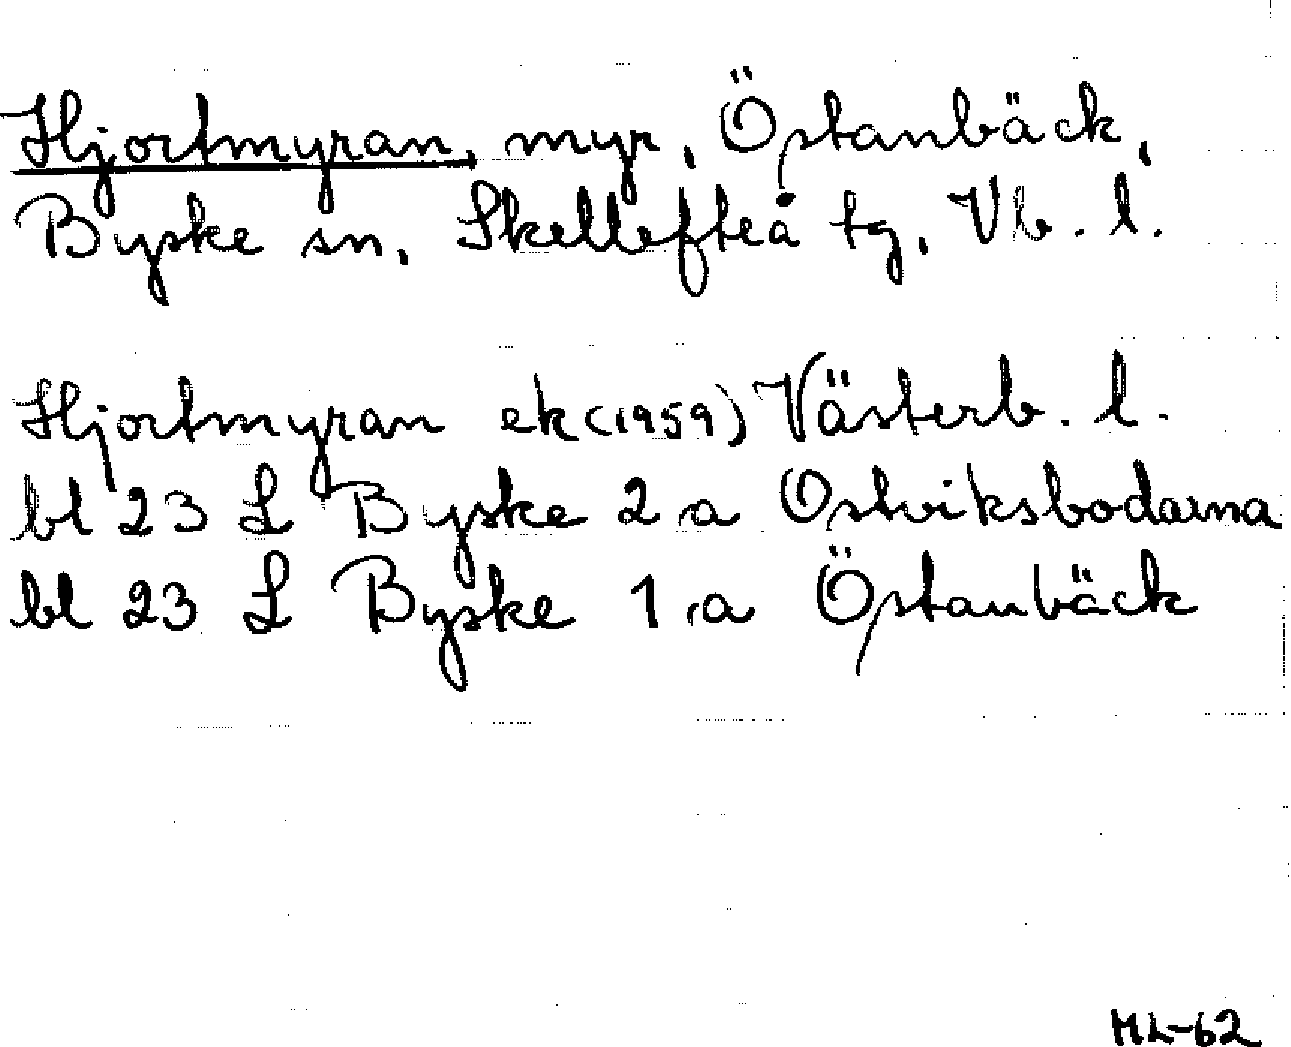 Hjortmyran, myr, Östanbäck,
Byske sn, Skellefteå tg, Vb. l.
Hjortmyran ek (1959) Västerb. l.
bl 23 L Byske 2 a Ostviksbodarna
bl 23 L Byske 1 a Östanbäck
ML-62